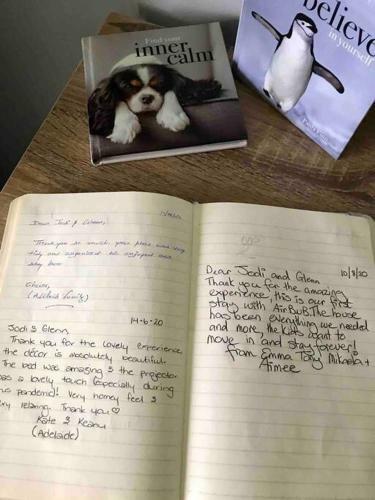 Find your
inner
calm
believe
in yourself
Dear Jodi & Glenn,
Thank you so much, your place was very
tidy and we enjoyed our
stay here
Cheers,
(Adelaide Family)
14-6-20
Jodi & Glenn,
Thank you for the lovely experience
the décor is absolutely beautiful.
The bed was amazing & the projector
was a lovely touch (especially during
this pandemic)! Very homey feel &
very relaxing. Thank you ♡
Kate & Keanu
(Adelaide)
10/8/20
Dear Jodi and Glenn
Thank you for the amazing
experience, this is our first
stay with AirBnB. The house
has been everything we needed
and more, the kids want to
move in and stay forever!
from Emma Tony Mikaela +
Aimee